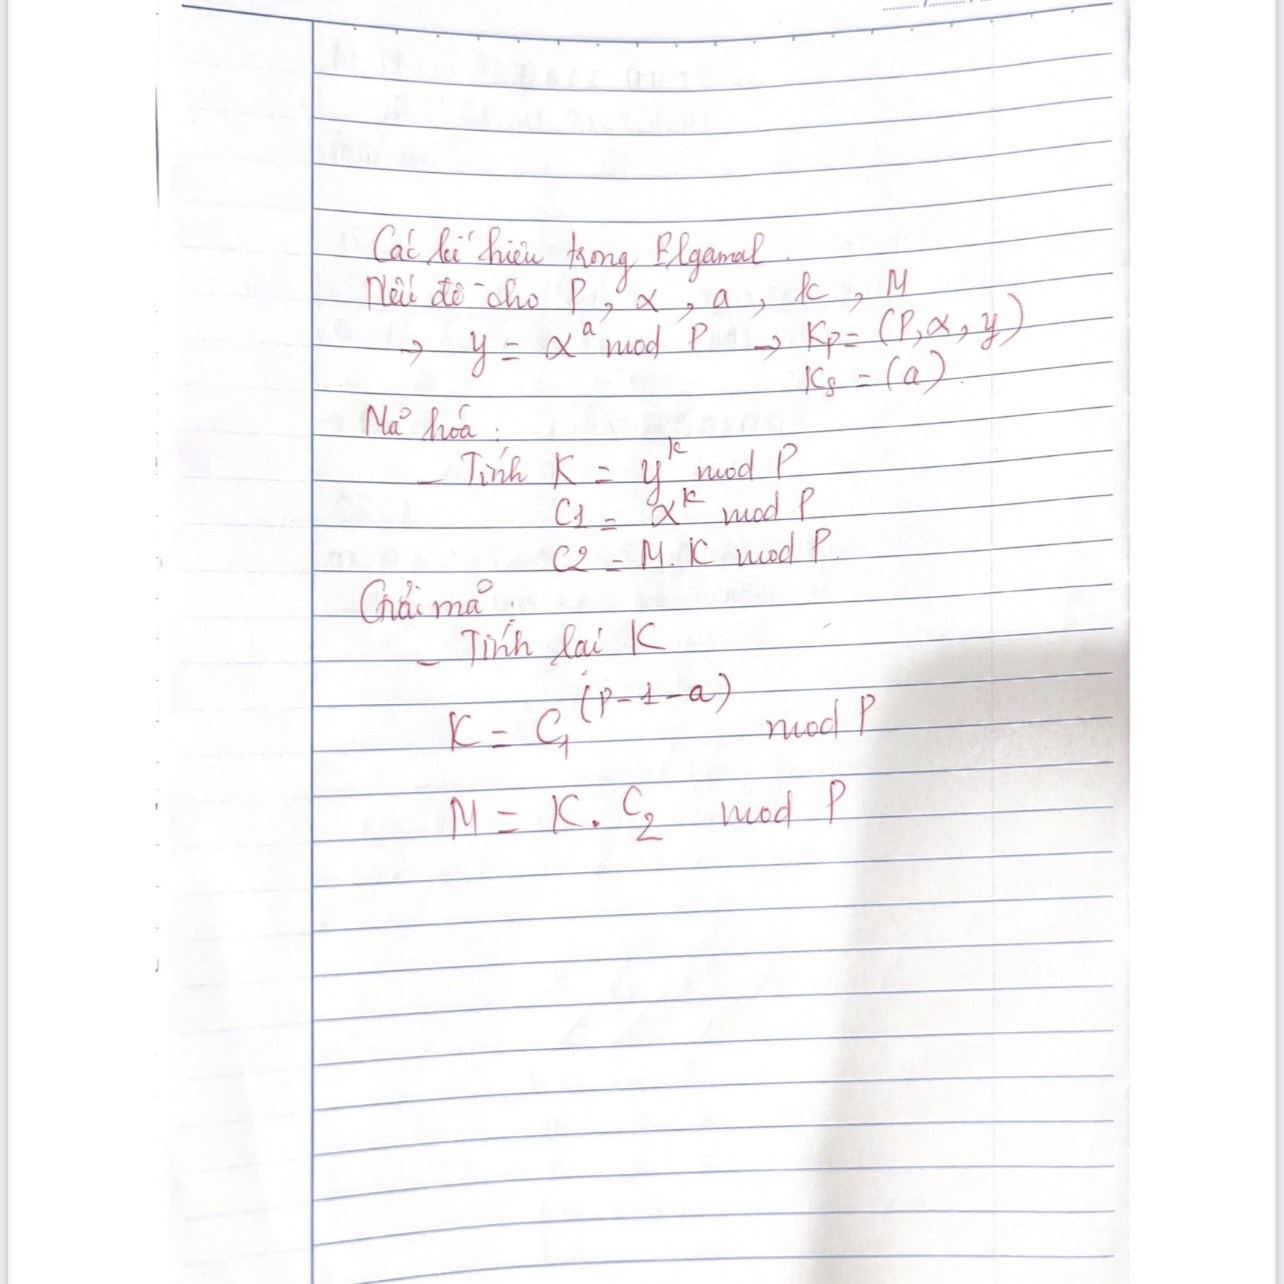 Các kí hiệu trong Elgamal.
Nếu đề cho P, α, a, k, M
→ y = α^a mod P → Kp = (P, α, y)
Ks = (a).
Mã hóa:
– Tính K = y^k mod P
C1 = α^k mod P
C2 = M.K mod P.
Giải mã:
– Tính lại K
K = C₁^(P-1-a) mod P
M = K. C₂ mod P